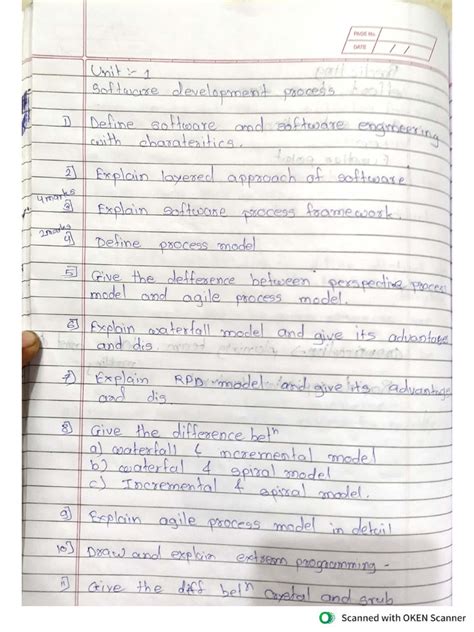 PAGE No.
DATE / /
Unit :- 1
Software development process
1) Define software and software engineering
with charateritics.
2) Explain layered approach of software
4 marks
3) Explain software process framework.
2 marks
4) Define process model
5) Give the defference between perspective process
model and agile process model.
6) Explain waterfall model and give its advantage
and dis.
7) Explain RPD model and give its advantage
and dis.
8) Give the difference betn
a) waterfall & incremental model
b) waterfal & spiral model
c) Incremental & spiral model.
9) Explain agile process model in detail
10) Draw and explain extreem programming -
11) Give the diff betn Crystal and srub
Scanned with OKEN Scanner